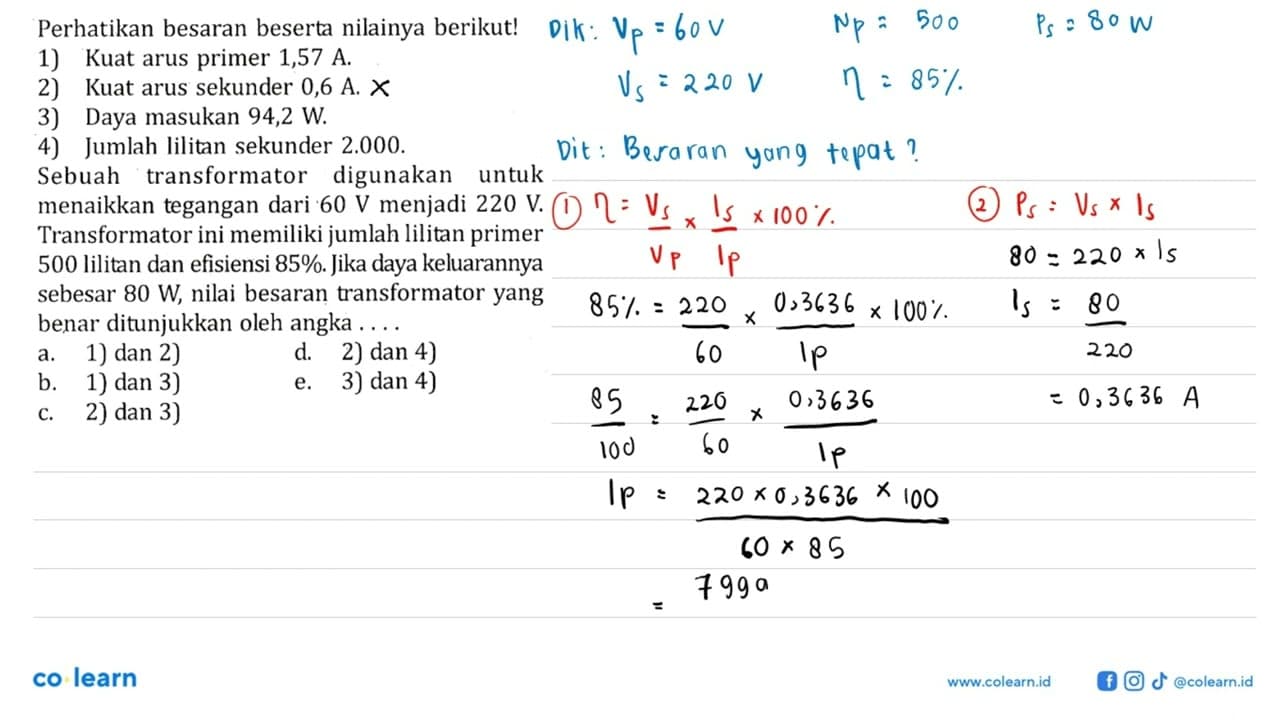 Perhatikan besaran beserta nilainya berikut!
1) Kuat arus primer 1,57 A.
2) Kuat arus sekunder 0,6 A. ×
3) Daya masukan 94,2 W.
4) Jumlah lilitan sekunder 2.000.
Sebuah transformator digunakan untuk
menaikkan tegangan dari 60 V menjadi 220 V.
Transformator ini memiliki jumlah lilitan primer
500 lilitan dan efisiensi 85%. Jika daya keluarannya
sebesar 80 W, nilai besaran transformator yang
benar ditunjukkan oleh angka . . . .
a. 1) dan 2)
b. 1) dan 3)
c. 2) dan 3)
d. 2) dan 4)
e. 3) dan 4)
Dik: Vp = 60 V Np = 500 Ps = 80 W
Vs = 220 V η = 85%
Dit: Besaran yang tepat?
① η = Vs/Vp × Is/Ip × 100%
85% = 220/60 × 0,3636/Ip × 100%
85/100 = 220/60 × 0,3636/Ip
Ip = 220 × 0,3636 × 100 / 60 × 85
= 799a
② Ps = Vs × Is
80 = 220 × Is
Is = 80/220
= 0,3636 A
co learn
www.colearn.id
@colearn.id